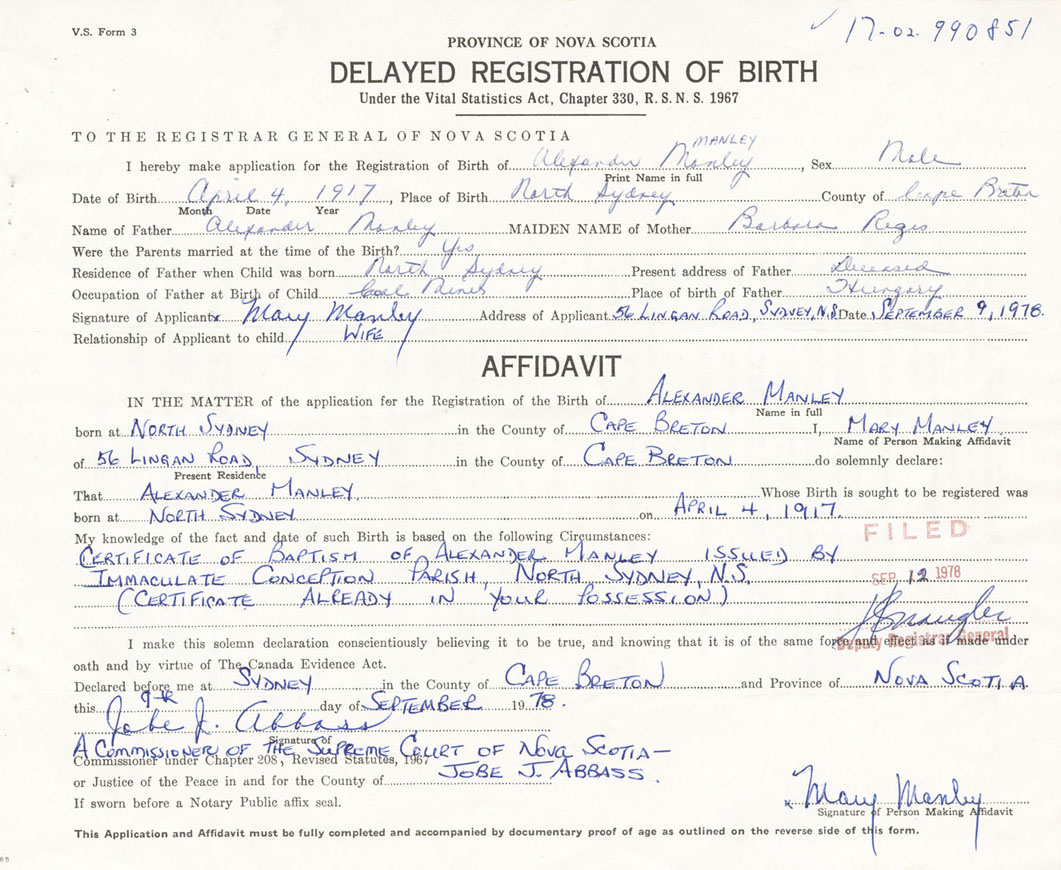 V.S. Form 3
17-02-990851
PROVINCE OF NOVA SCOTIA
DELAYED REGISTRATION OF BIRTH
Under the Vital Statistics Act, Chapter 330, R.S.N.S. 1967
TO THE REGISTRAR GENERAL OF NOVA SCOTIA
MANLEY
I hereby make application for the Registration of Birth of Alexander Manley, Sex Male
Print Name in full
Date of Birth April 4, 1917, Place of Birth North Sydney County of Cape Breton
Month Date Year
Name of Father Alexander Manley MAIDEN NAME of Mother Barbara Regis
Were the Parents married at the time of the Birth? Yes
Residence of Father when Child was born North Sydney Present address of Father Deceased
Occupation of Father at Birth of Child Coal Place of birth of Father Hungary
Signature of Applicant x Mary Manley Address of Applicant 56 LINGAN ROAD, SYDNEY, N.S. Date SEPTEMBER 9, 1978.
Relationship of Applicant to child WIFE
AFFIDAVIT
IN THE MATTER of the application for the Registration of the Birth of ALEXANDER MANLEY
Name in full
born at NORTH SYDNEY in the County of CAPE BRETON I, MARY MANLEY
Name of Person Making Affidavit
of 56 LINGAN ROAD, SYDNEY in the County of CAPE BRETON do solemnly declare:
Present Residence
That ALEXANDER MANLEY Whose Birth is sought to be registered was
born at NORTH SYDNEY on APRIL 4, 1917.
My knowledge of the fact and date of such Birth is based on the following Circumstances:
FILED
CERTIFICATE OF BAPTISM OF ALEXANDER MANLEY ISSUED BY
IMMACULATE CONCEPTION PARISH, NORTH SYDNEY, N.S.
SEP 12 1978
(CERTIFICATE ALREADY IN YOUR POSSESSION)
I make this solemn declaration conscientiously believing it to be true, and knowing that it is of the same force and effect as if made under
Deputy Registrar General
oath and by virtue of The Canada Evidence Act.
Declared before me at SYDNEY in the County of CAPE BRETON and Province of NOVA SCOTIA
this 9th day of SEPTEMBER 1978.
Jobe J. Abbass
Signature of
A COMMISSIONER OF THE SUPREME COURT OF NOVA SCOTIA-
Commissioner under Chapter 208, Revised Statutes, 1967
JOBE J. ABBASS.
or Justice of the Peace in and for the County of
x Mary Manley
If sworn before a Notary Public affix seal.
Signature of Person Making Affidavit
This Application and Affidavit must be fully completed and accompanied by documentary proof of age as outlined on the reverse side of this form.